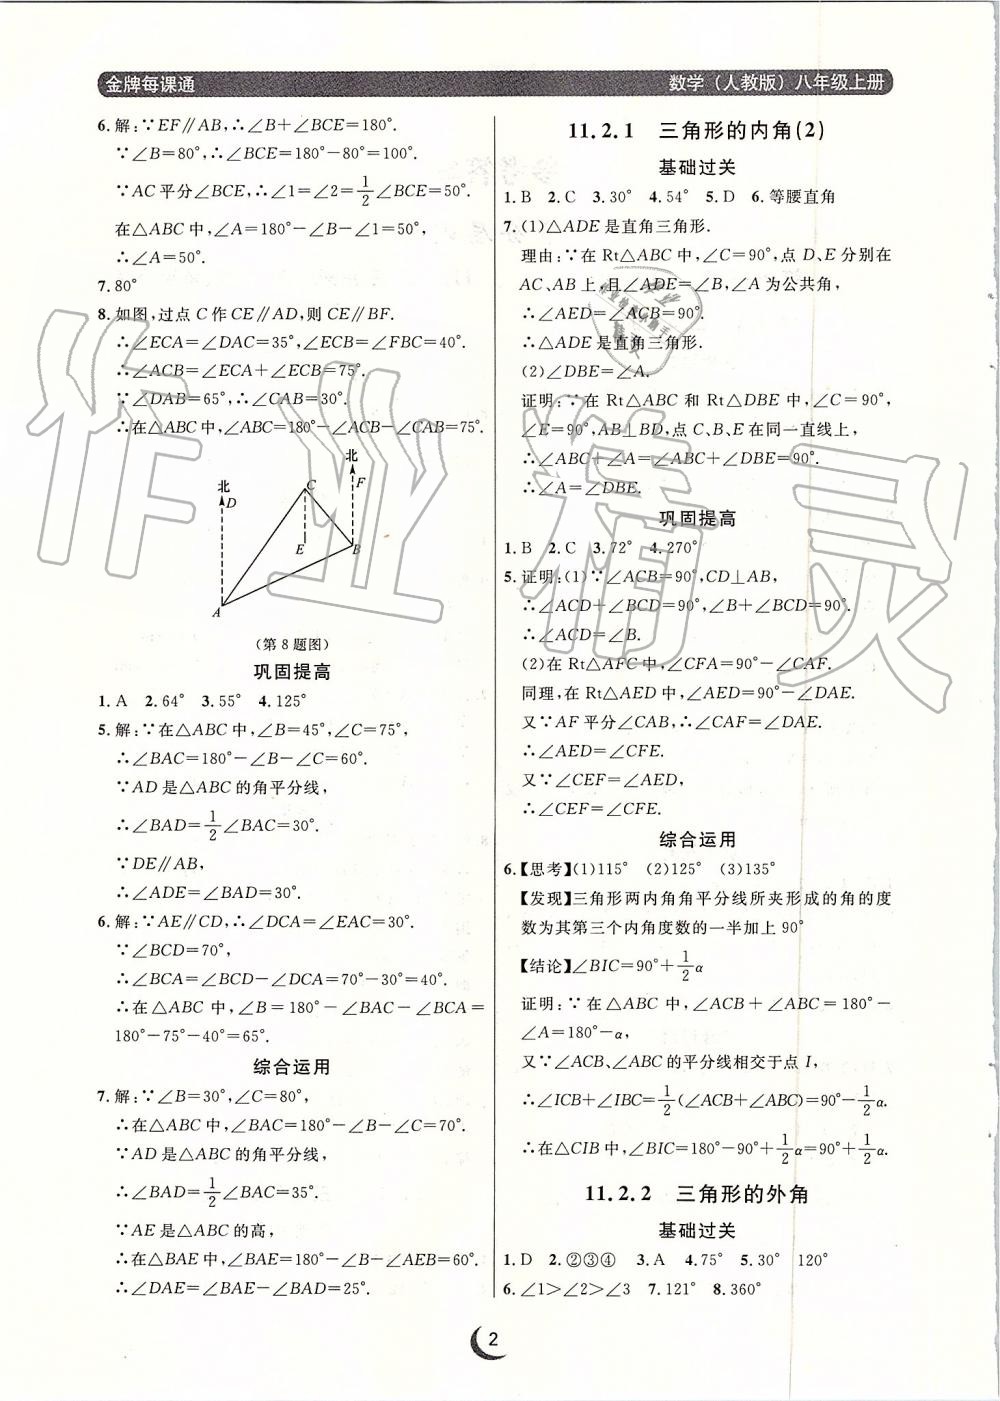 金牌每课通
数学(人教版)八年级上册
6.解:∵EF∥AB,∴∠B+∠BCE=180°.
∵∠B=80°,∴∠BCE=180°-80°=100°.
∵AC平分∠BCE,∴∠1=∠2=1/2∠BCE=50°.
在△ABC中,∠A=180°-∠B-∠1=50°,
∴∠A=50°.
7.80°
8.如图,过点C作CE∥AD,则CE∥BF.
∴∠ECA=∠DAC=35°,∠ECB=∠FBC=40°.
∴∠ACB=∠ECA+∠ECB=75°.
∵∠DAB=65°,∴∠CAB=30°.
∴在△ABC中,∠ABC=180°-∠ACB-∠CAB=75°.
北
北
D
C
F
E
B
A
(第8题图)
巩固提高
1.A 2.64° 3.55° 4.125°
5.解:∵在△ABC中,∠B=45°,∠C=75°,
∴∠BAC=180°-∠B-∠C=60°.
∵AD是△ABC的角平分线,
∴∠BAD=1/2∠BAC=30°.
∵DE∥AB,
∴∠ADE=∠BAD=30°.
6.解:∵AE∥CD,∴∠DCA=∠EAC=30°.
∵∠BCD=70°,
∴∠BCA=∠BCD-∠DCA=70°-30°=40°.
∴在△ABC中,∠B=180°-∠BAC-∠BCA=
180°-75°-40°=65°.
综合运用
7.解:∵∠B=30°,∠C=80°,
∴在△ABC中,∠BAC=180°-∠B-∠C=70°.
∵AD是△ABC的角平分线,
∴∠BAD=1/2∠BAC=35°.
∵AE是△ABC的高,
∴在△BAE中,∠BAE=180°-∠B-∠AEB=60°.
∴∠DAE=∠BAE-∠BAD=25°.
11.2.1 三角形的内角(2)
基础过关
1.B 2.C 3.30° 4.54° 5.D 6.等腰直角
7.(1)△ADE是直角三角形.
理由:∵在Rt△ABC中,∠C=90°,点D、E分别在
AC、AB上,且∠ADE=∠B,∠A为公共角,
∴∠AED=∠ACB=90°.
∴△ADE是直角三角形.
(2)∠DBE=∠A.
证明:∵在Rt△ABC和Rt△DBE中,∠C=90°,
∠E=90°,AB⊥BD,点C、B、E在同一直线上,
∴∠ABC+∠A=∠ABC+∠DBE=90°.
∴∠A=∠DBE.
巩固提高
1.B 2.C 3.72° 4.270°
5.证明:(1)∵∠ACB=90°,CD⊥AB,
∴∠ACD+∠BCD=90°,∠B+∠BCD=90°.
∴∠ACD=∠B.
(2)在Rt△AFC中,∠CFA=90°-∠CAF.
同理,在Rt△AED中,∠AED=90°-∠DAE.
又∵AF平分∠CAB,∴∠CAF=∠DAE.
∴∠AED=∠CFE.
又∵∠CEF=∠AED,
∴∠CEF=∠CFE.
综合运用
6.【思考】(1)115° (2)125° (3)135°
【发现】三角形两内角角平分线所夹形成的角的度
数为其第三个内角度数的一半加上90°
【结论】∠BIC=90°+1/2α
证明:∵在△ABC中,∠ACB+∠ABC=180°-
∠A=180°-α,
又∵∠ACB、∠ABC的平分线相交于点I,
∴∠ICB+∠IBC=1/2(∠ACB+∠ABC)=90°-1/2α.
∴在△CIB中,∠BIC=180°-90°+1/2α=90°+1/2α.
11.2.2 三角形的外角
基础过关
1.D 2.②③④ 3.A 4.75° 5.30° 120°
6.∠1>∠2>∠3 7.121° 8.360°
2
作业精灵